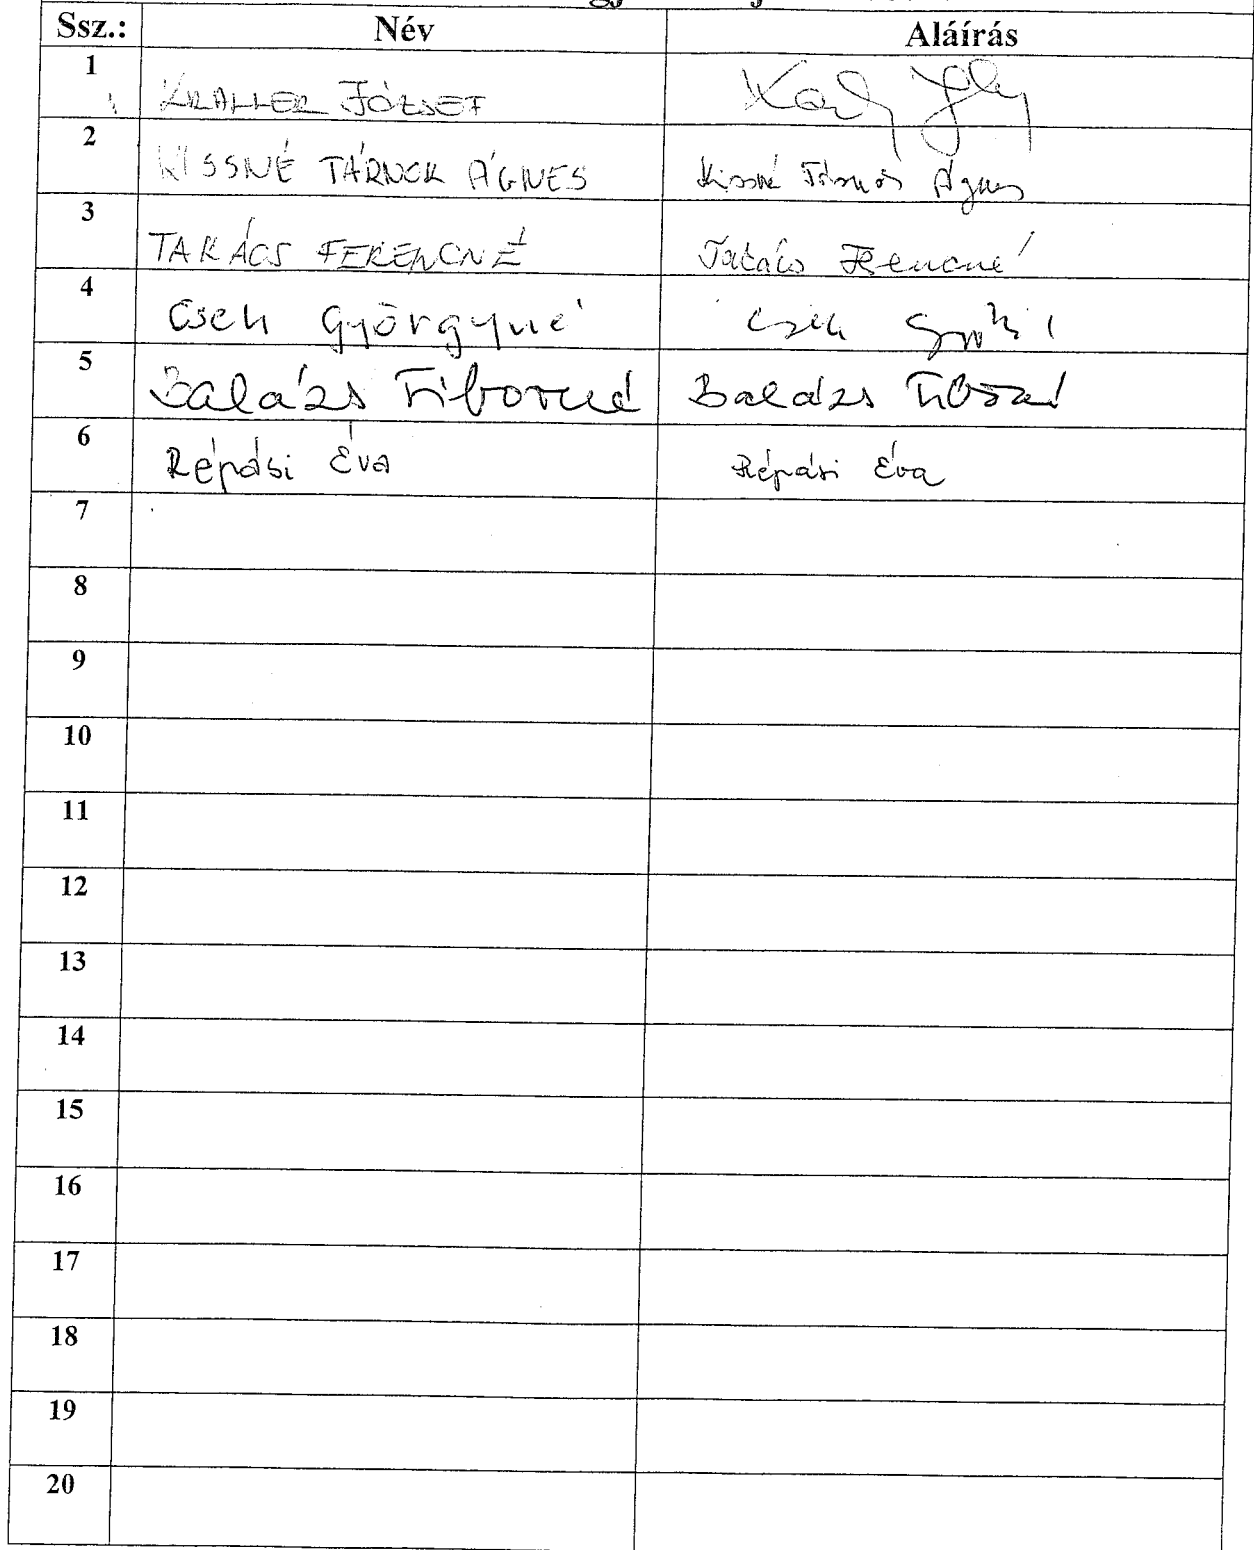 Ssz.: Név Aláírás
1 KRALLER JÓZSEF
2 KISSNÉ TÁRNOK ÁGNES Kissné Tárnok Ágnes
3 TAKÁCS FERENCNÉ Takács Ferencné
4 Cseh Györgyné Cseh
5 Balázs Tiborné Balázs Tiborné
6 Répási Éva Répási Éva
7
8
9
10
11
12
13
14
15
16
17
18
19
20